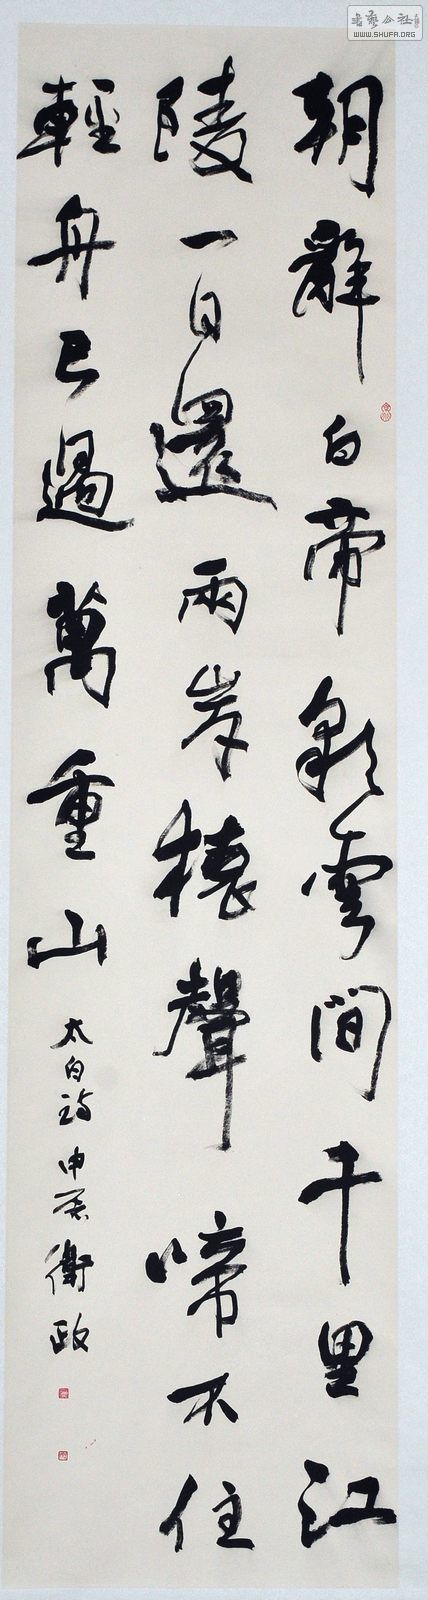 朝辭白帝彩雲間千里江
陵一日還兩岸猿聲啼不住
輕舟已過萬重山
太白詩 甲辰 衛政
書藝公社
WWW.SHUFA.ORG